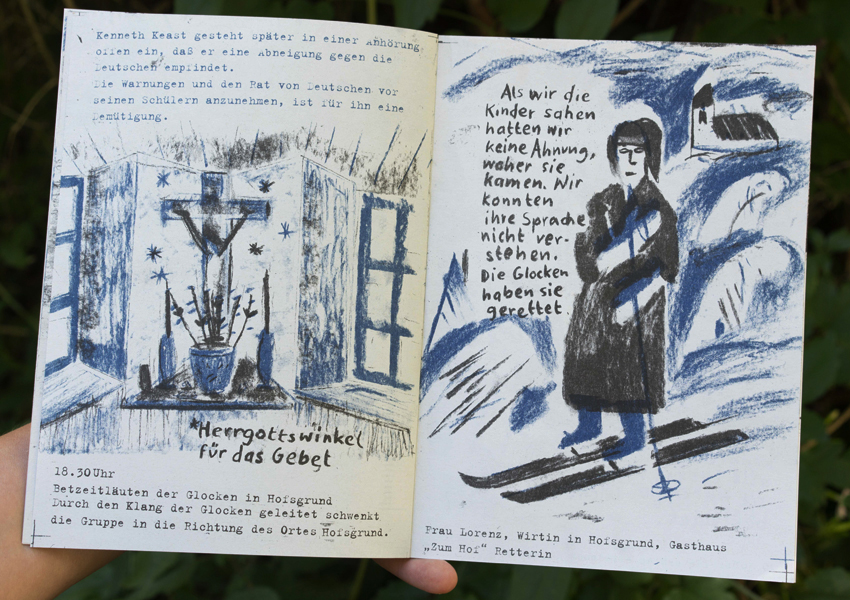 Kenneth Keast gesteht später in einer Anhörung
offen ein, daß er eine Abneigung gegen die
Deutschen empfindet.
Die Warnungen und den Rat von Deutschen vor
seinen Schülern anzunehmen, ist für ihn eine
Demütigung.
*Herrgottswinkel
für das Gebet
18.30 Uhr
Betzeitläuten der Glocken in Hofsgrund
Durch den Klang der Glocken geleitet schwenkt
die Gruppe in die Richtung des Ortes Hofsgrund.
Als wir die
Kinder sahen
hatten wir
keine Ahnung,
woher sie
kamen. Wir
konnten
ihre Sprache
nicht ver-
stehen.
Die Glocken
haben sie
gerettet.
Frau Lorenz, Wirtin in Hofsgrund, Gasthaus
„Zum Hof" Retterin